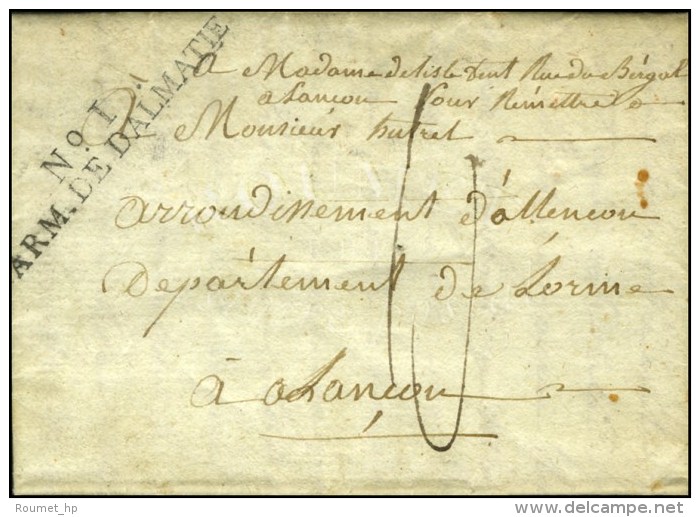 No. 1
ARM. DE DALMATIE
A Madame delisle Rue du
a Lançon pour Remettre a
Monsieur hutrel
arrondissement d'allençon
Departement de Lorine
à aLançon
10
Roumet_hp
www.delcampe.net